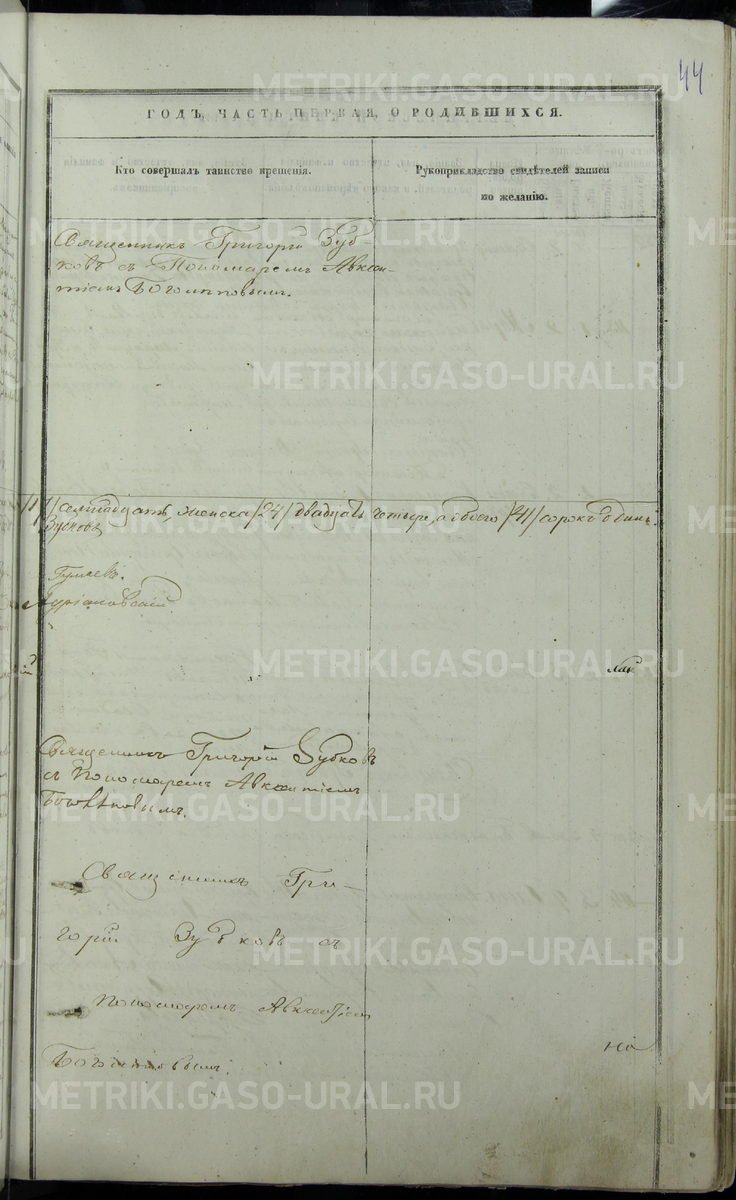 44
ГОДЪ, ЧАСТЬ ПЕРВАЯ, О РОДИВШИХСЯ.
Кто совершалъ таинство крещенія.
Рукоприкладство свидѣтелей записи
по желанію.
Священникъ Григорій Зуб-
ковъ съ Пономаремъ Авксен-
тіемъ
/17/ семнадцать, женска /24/ двадцать четыре, а обоего /41/ сорокъ одинъ.
Зубковъ
Священникъ Григорій Зубковъ
съ Пономаремъ Авксентіемъ
Священникъ Гри-
горій Зубковъ съ
Пономаремъ Авксентіем
METRIKI.GASO-URAL.RU
METRIKI.GASO-URAL.RU
METRIKI.GASO-URAL.RU
METRIKI.GASO-URAL.RU
METRIKI.GASO-URAL.RU
METRIKI.GASO-URAL.RU
METRIKI.GASO-URAL.RU
METRIKI.GASO-URAL.RU